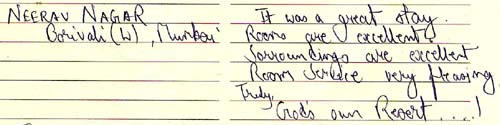 NEERAV NAGAR
Borivali (W), Mumbai
It was a great stay.
Rooms are excellent
Sorroundings are excellent
Room Service very pleasing
Truly,
God's own Resort....!